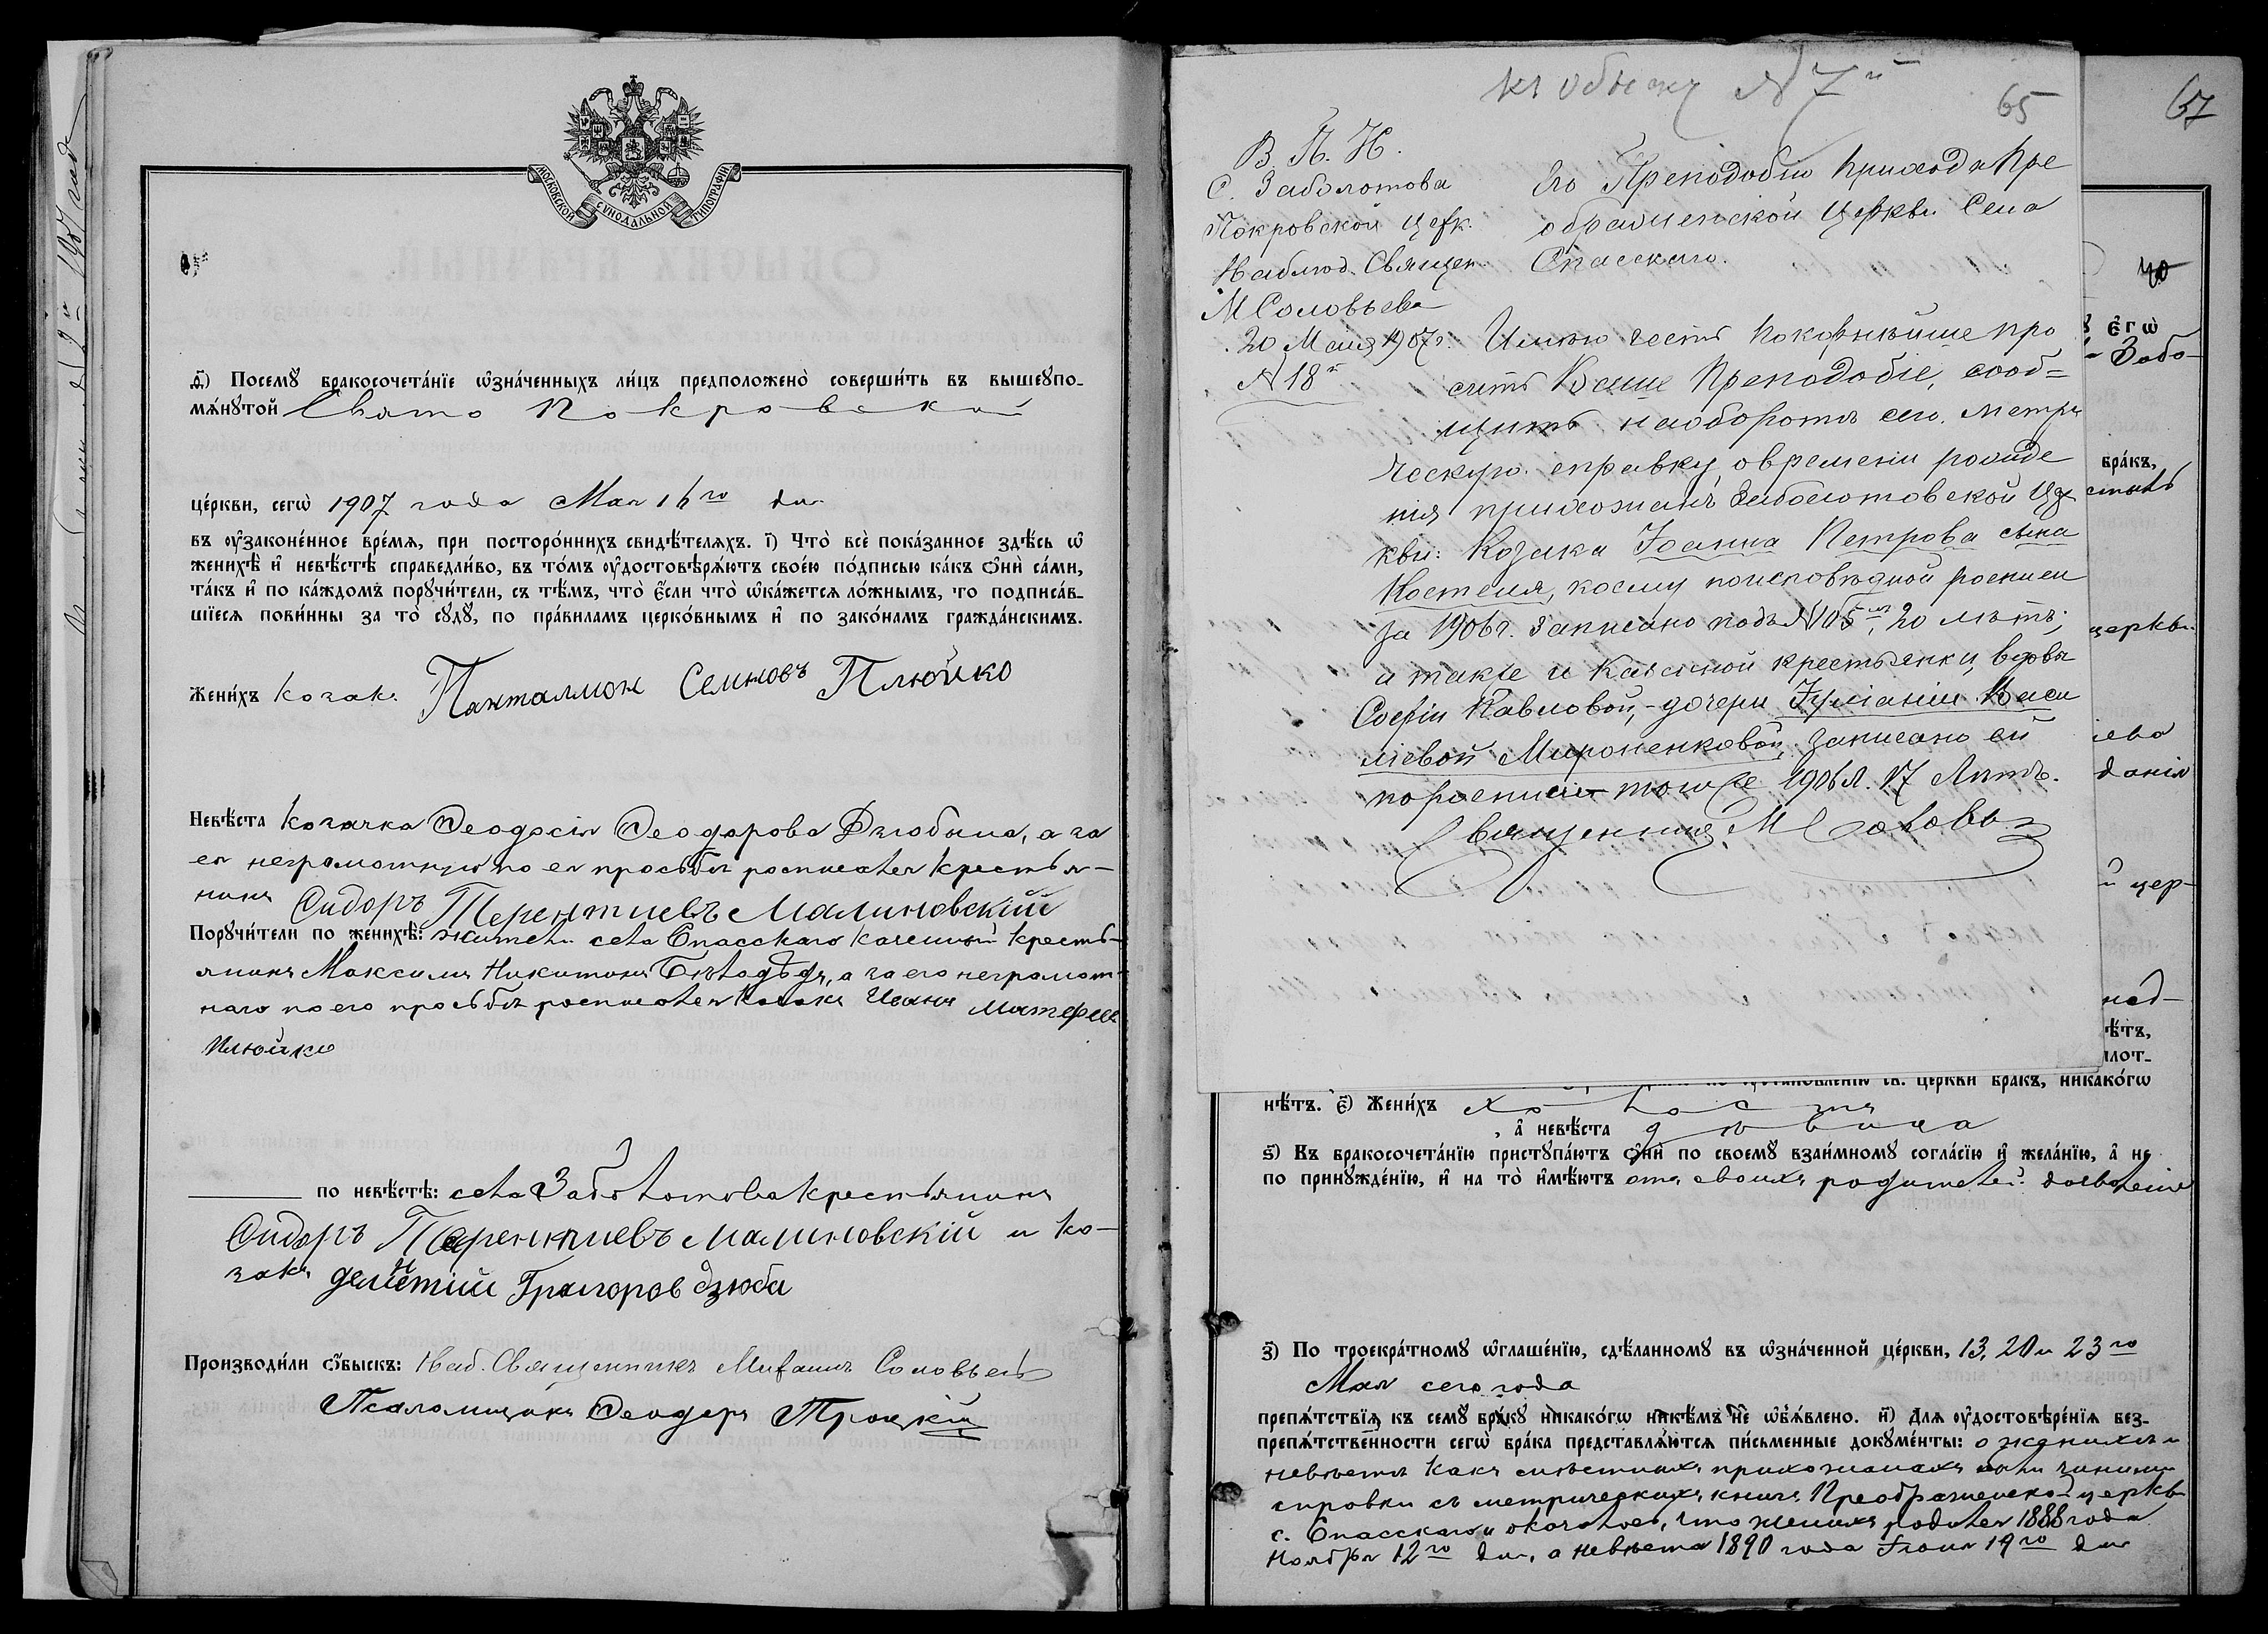 МОСКОВСКОЙ СѴНОДАЛЬНОЙ ТИПОГРАФІИ
д҃) Посемꙋ бракосочета́нїе ѡ҆зна́ченныхъ ли́цъ предположено̀ соверши́ть въ вышеꙋпо-
мѧ́нꙋтой Свято Покровской
це́ркви, сегѡ̀ 1907 года Мая 16го дня
въ ᲂу҆законе́нное вре́мѧ, при посторо́ннихъ свидѣ́телѧхъ. і҃) Что̀ всѐ пока́занное здѣ́сь ѡ҆
женихѣ̀ и҆ невѣ́стѣ справедли́во, въ то́мъ ᲂу҆достовѣрѧ́ютъ свое́ю по́дписью ка́къ ѻ҆нѝ са́ми,
та́къ и҆ по ка́ждомъ порꙋчи́тели, съ тѣ́мъ, что̀ є҆́сли что̀ ѡ҆ка́жетсѧ ло́жнымъ, то подписа́в-
шїесѧ пови́нны за то̀ сꙋдꙋ̀, по пра́виламъ церко́внымъ и҆ по зако́намъ гражда́нскимъ.
Жени́хъ козакъ Панталмон Семновъ Плюйко
Невѣ́ста козачка Ѳеодосія Ѳеодорова Дзюбина, а за
ея неграмотную по ея просьбѣ росписался крестья-
нинъ Сидоръ Терентиевъ Малиновскій
Порꙋчи́тели по женихѣ̀: жители села Спасскаго казенный кресть-
янинъ Максимъ Никитинъ Бѣлодѣдъ, а за его неграмот-
наго по его просьбѣ росписался козакъ Иванъ Матфеев
Плюйко
по невѣ́стѣ: села Заболотова крестьянинъ
Сидоръ Терентиевъ Малиновскій и ко-
закъ Григоров дзюба
Производи́ли ѻ҆́быскъ: Наб. Священникъ Михаилъ Соловьевъ
Псаломщикъ Ѳеодоръ Троцкій
къ обыску № 7й
65
67
В. П. И.
С. Заболотова
Покровской церк.
Наблюд. Священ.
М Соловьева
20 Мая 1907г.
№ 18й
Его Преподобію Прихода Пре
ображенской церкви Села
Спасскаго.
Имѣю честь покорнѣйше про
сить Ваше Преподобіе, сооб=
щить наоборотѣ сего. метри
ческую справку овремени рожде
нія прихожанъ Заболотовской Цер
кви: Козака Іоанна Петрова сына
Костеля, коему поисповѣдной росписи
за 1906г. Записано подъ № 105м, 20 лѣтъ;
а также и Казенной крестьянки, вдовы
Софіи Павловой,-дочери Іуліаніи Васи
ліевой Мироненковой, записано ей
поросписи тоже 1906г. 17 Лѣтъ.
Священникъ М Соловьевъ
є҆гѡ̀
Забо-
бра́къ,
церкви
данія
й цер-
над-
ѣ́тъ,
плот-
св. цє́ркви бра́къ, никако́гѡ
нѣ́тъ. є҃) Жени́хъ холостъ
, а҆ невѣ́ста дѣвица
ѕ҃) Въ бракосочета́нїю пристꙋпа́ютъ ѻ҆нѝ по своемꙋ̀ взаи́мномꙋ согла́сїю и҆ жела́нїю, а҆ не
по принꙋжде́нїю, и҆ на то̀ и҆мѣ́ютъ отъ своихъ родителей дозволеніе
з҃) По троекра́тномꙋ ѡ҆глаше́нїю, сдѣ́ланномꙋ въ ѡ҆зна́ченной це́ркви, 13, 20 и 23го
Мая сего года
препѧ́тствїѧ къ семꙋ̀ бра́кꙋ никако́гѡ никѣ́мъ не ѡ҆б̾ѧ́влено. и҃) Для ᲂу҆достовѣре́нїѧ без-
препѧ́тственности сегѡ̀ бра́ка представлѧ́ютсѧ пи́сьменные докꙋме́нты: о женихѣ и
невѣстѣ какъ мѣстныхъ прихожанахъ были чинимы
справки съ метрическихъ книгъ Преображенской церкви
с. Спасскаго и оказалось, что женихъ родился 1888 года
Ноября 12го дня, а невѣста 1890 года Іюня 19го дня